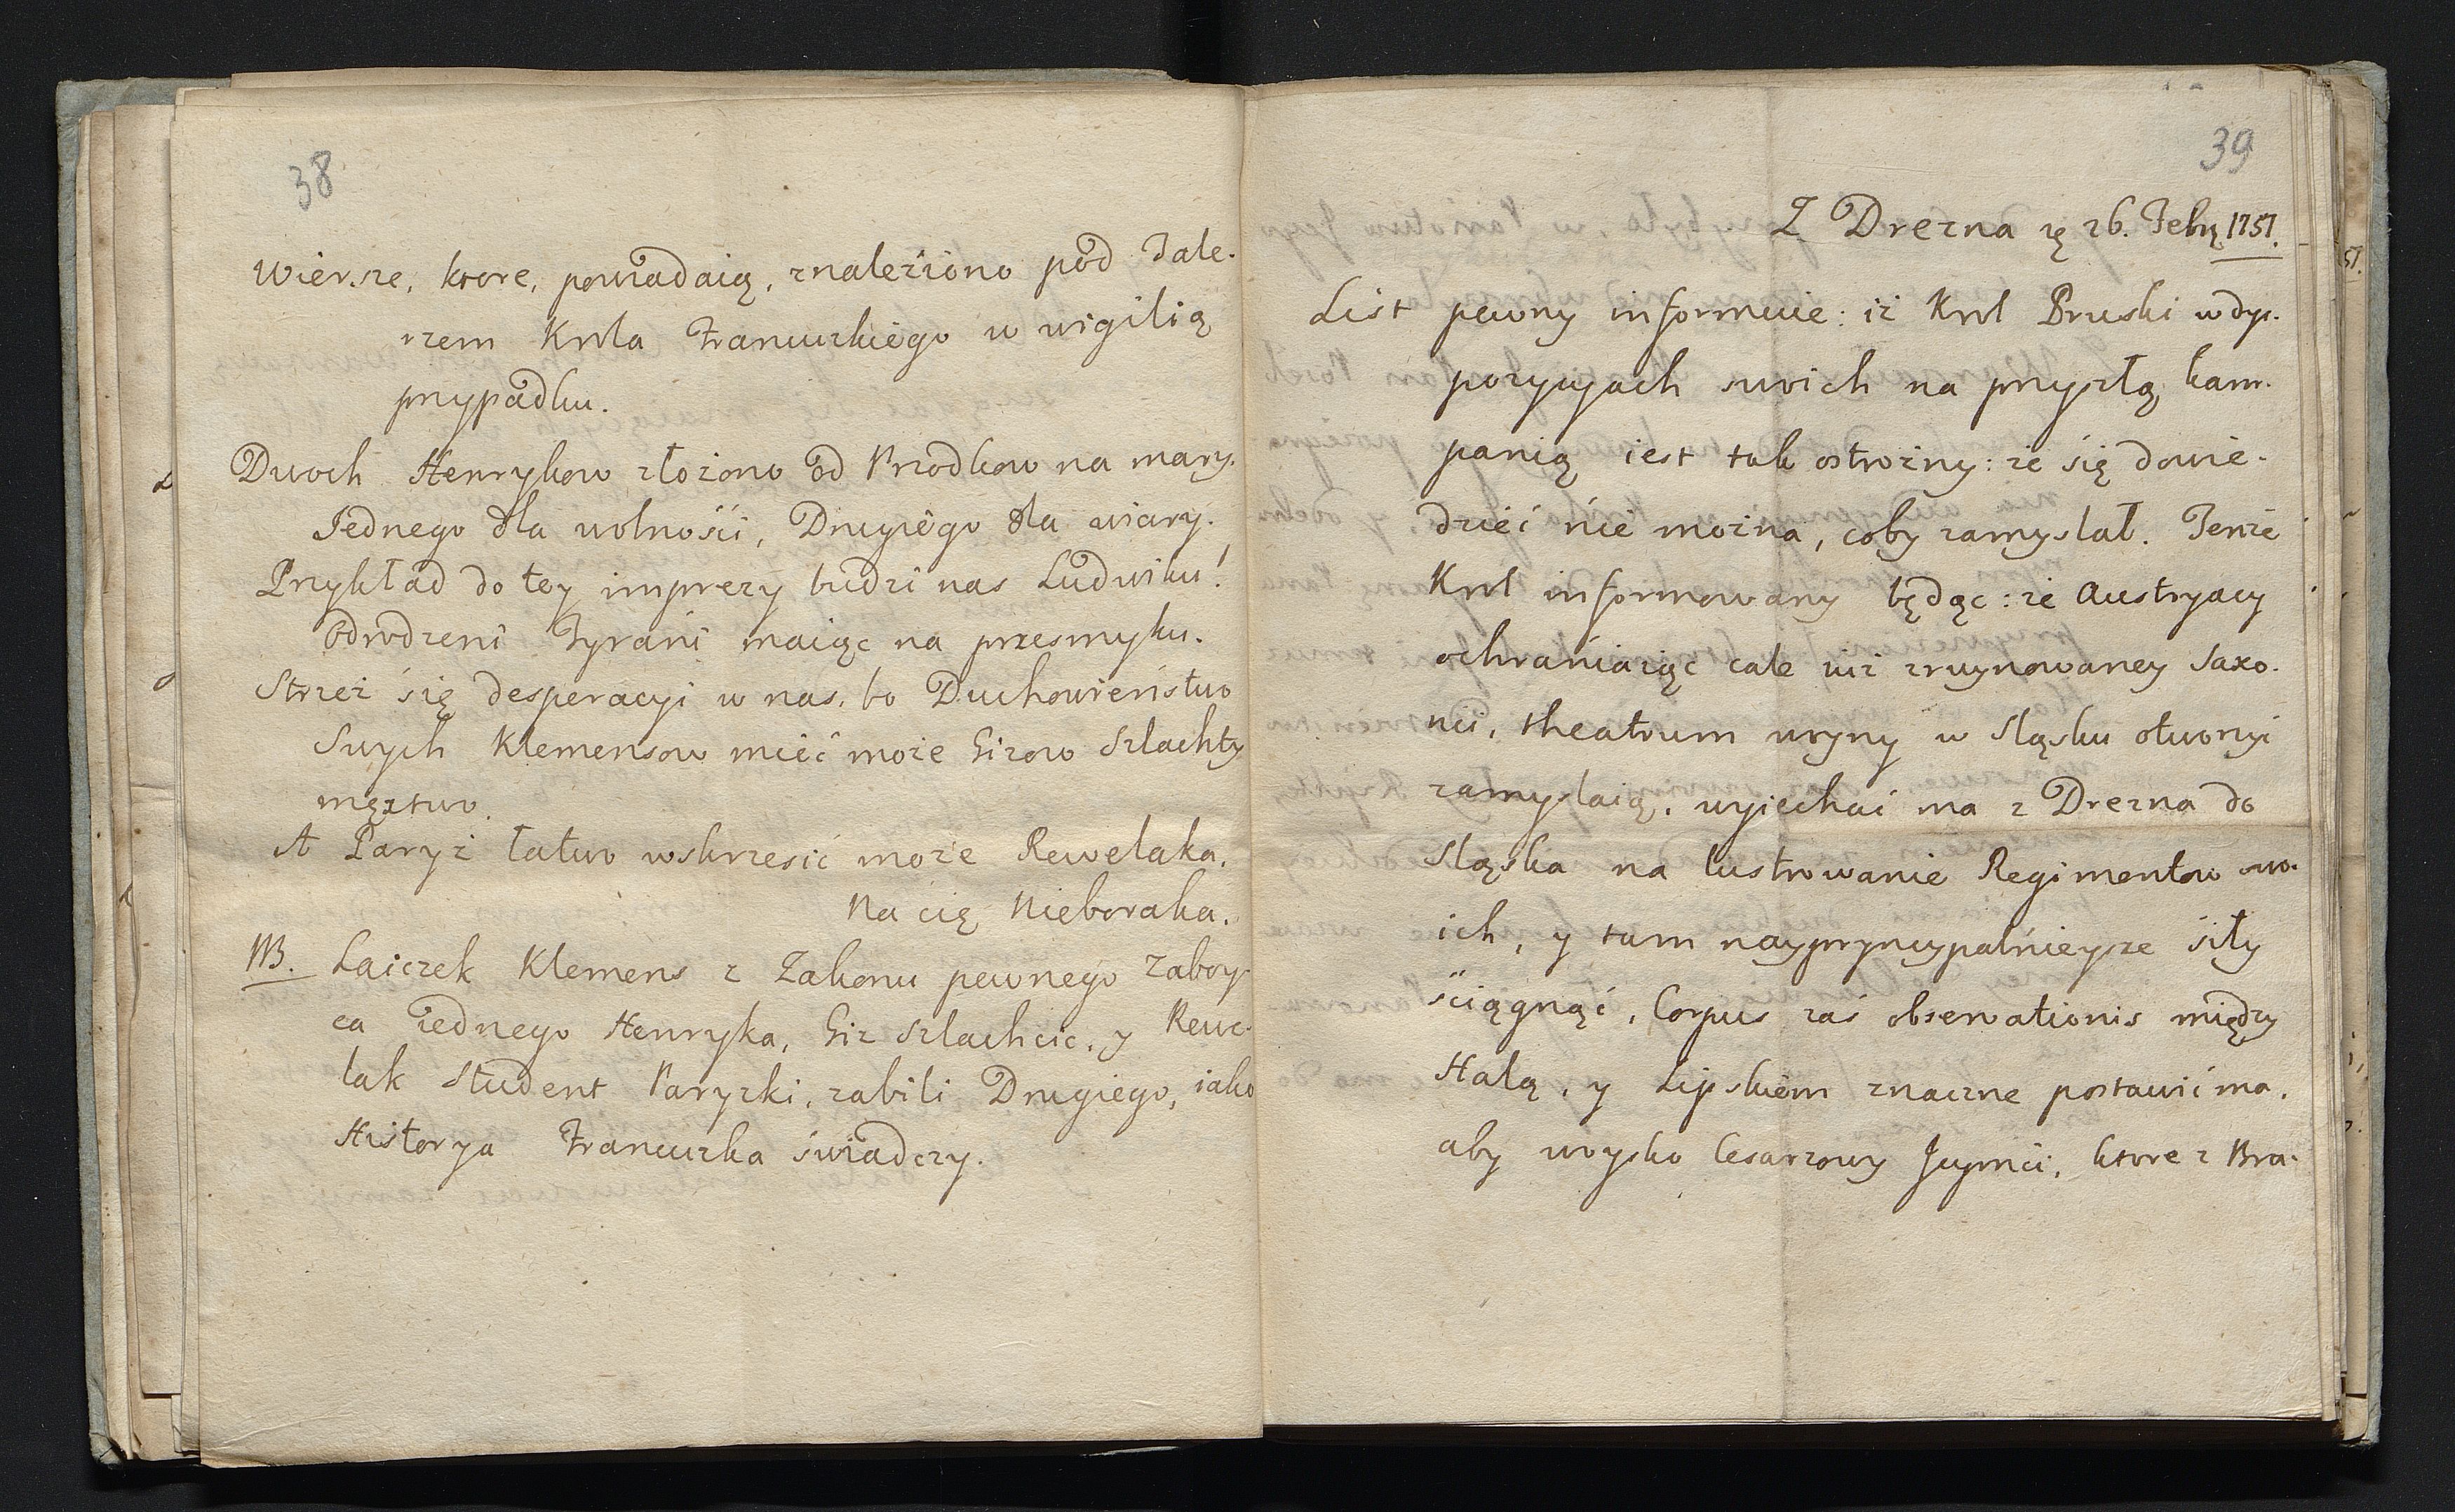 38
Wiersze, ktore, powiadaią, znaleziono pod Tale-
rzem Krola Francuzkiego w wigilią
przypadku.
Dwoch Henrykow złożono od Przodkow na mary.
Jednego dla wolności, Drugiego dla wiary.
Przykład do tey imprezy budzi nas Ludwiku!
Odrodzeni Tyrani maiąc na przesmyku.
Strzeż się desperacyi w nas, bo Duchowieństwo
Swych Klemensow mieć może Gizow Szlachty
męztwo.
A Paryż łatwo wskrzesić może Rewelaka.
Na cię Nieboraka.
NB. Laiczek Klemens z Zakonu pewnego zaboy-
ca iednego Henryka, Giz Szlachcic, y Rewe-
lak Student Paryzki, zabili Drugiego, iako
Historya Francuzka świadczy.
39
Z Drezna 26. Febr 1757.
List pewny informuie: iż Krol Pruski w dys-
pozycyach swoich na przyszłą kam-
panią iest tak ostrożny: że się dowie-
dzieć nie można, coby zamyslał. Tenże
Krol informowany będąc: że Austryacy
ochraniaiąc cale iuż zruynowaney Saxo-
nii, theatrum woyny w Sląsku otworzyć
zamyslaią, wyiechać ma z Drezna do
Sląska na lustrowanie Regimentow swo-
ich, y tam nayprzyncypalnieysze siły
ściągnąć, Corpus zaś observationis między
Halą, y Lipskiem znaczne postawić ma,
aby woysko Cesarzowy Jeymci, ktore z Bra-